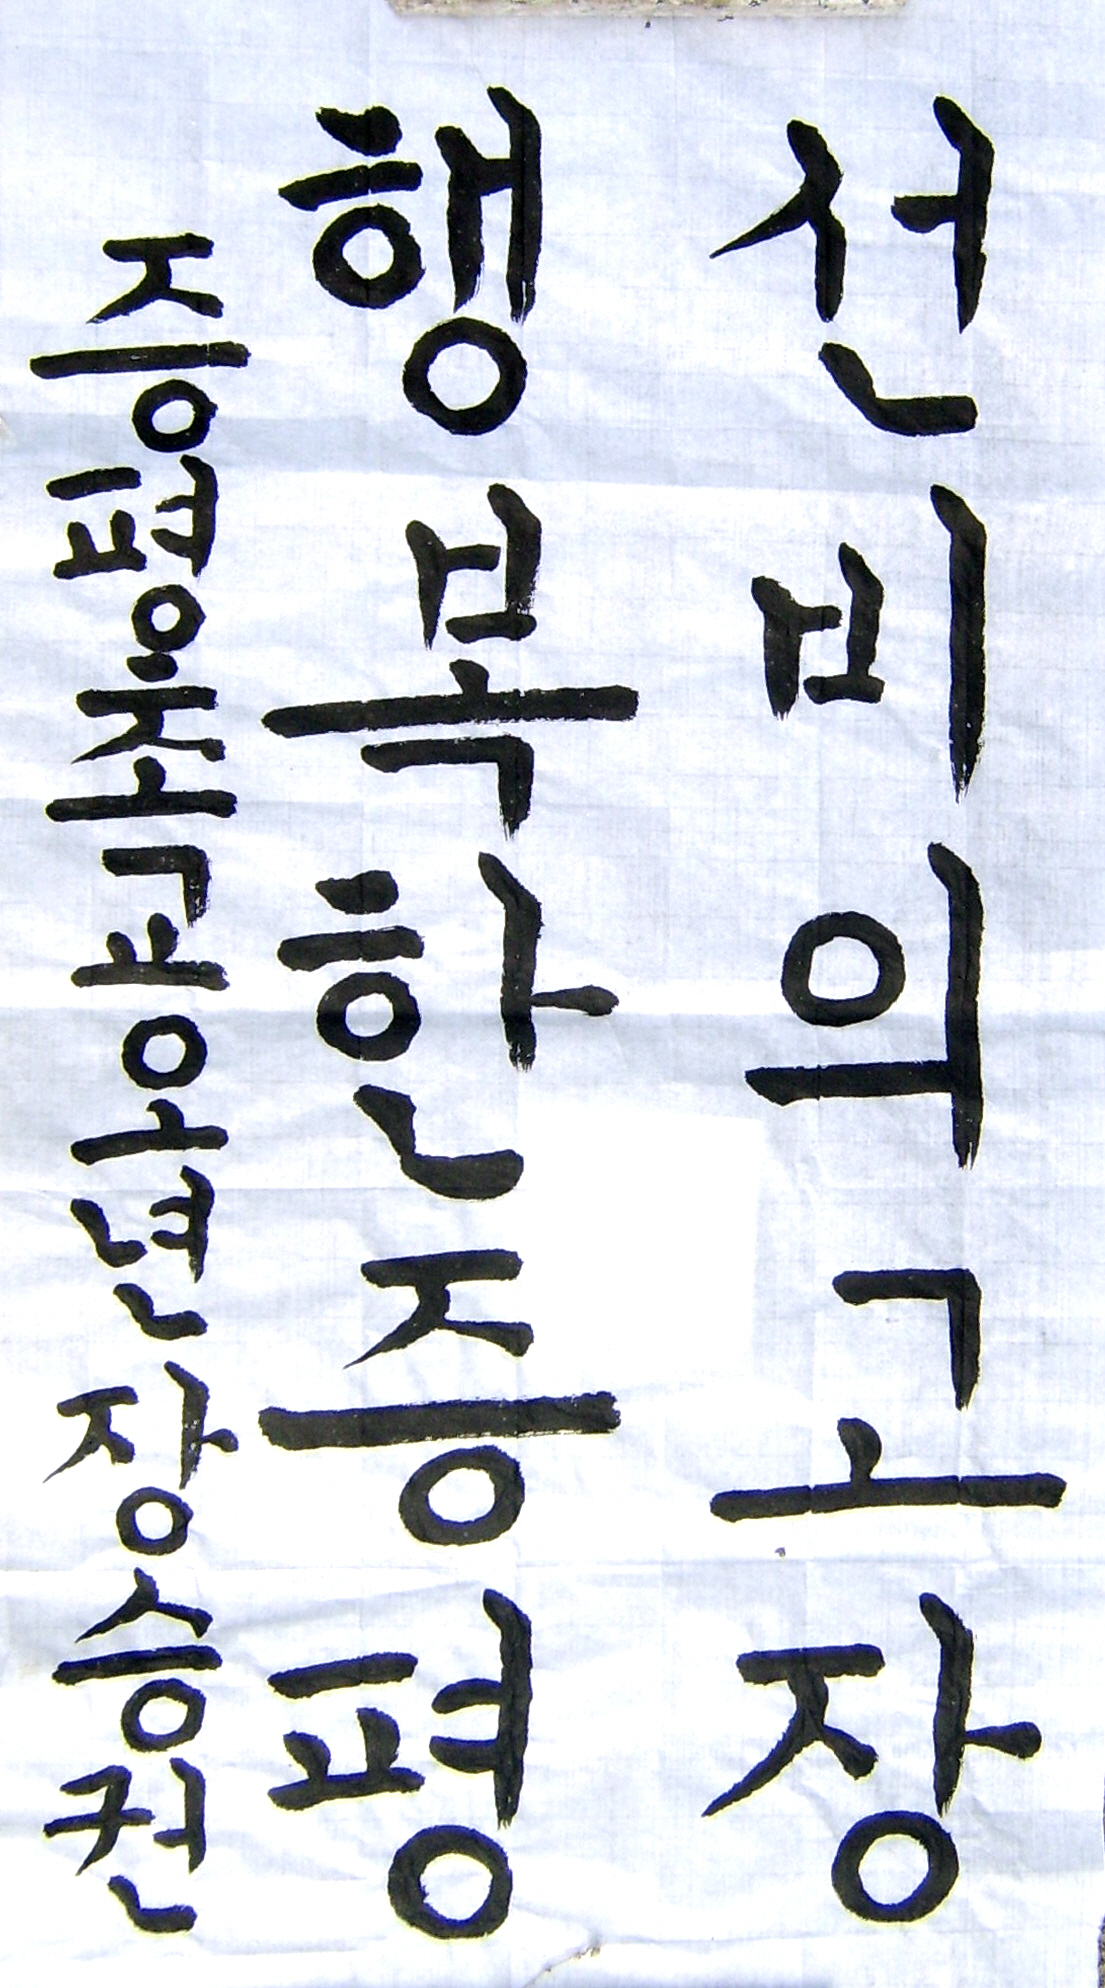 선비의고장
행복한증평
증평초교오년장승권